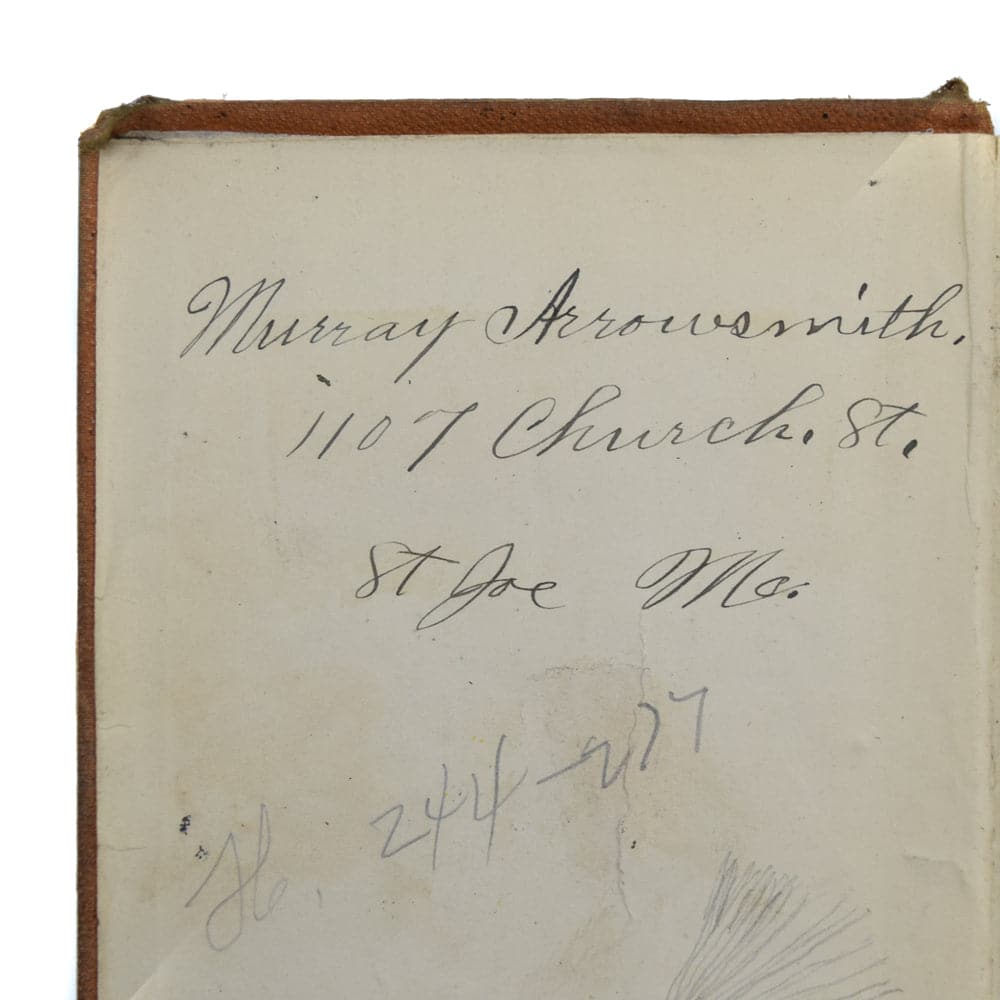 Murray Arrowsmith.
1107 Church. St.
St Joe Mo.
244-277